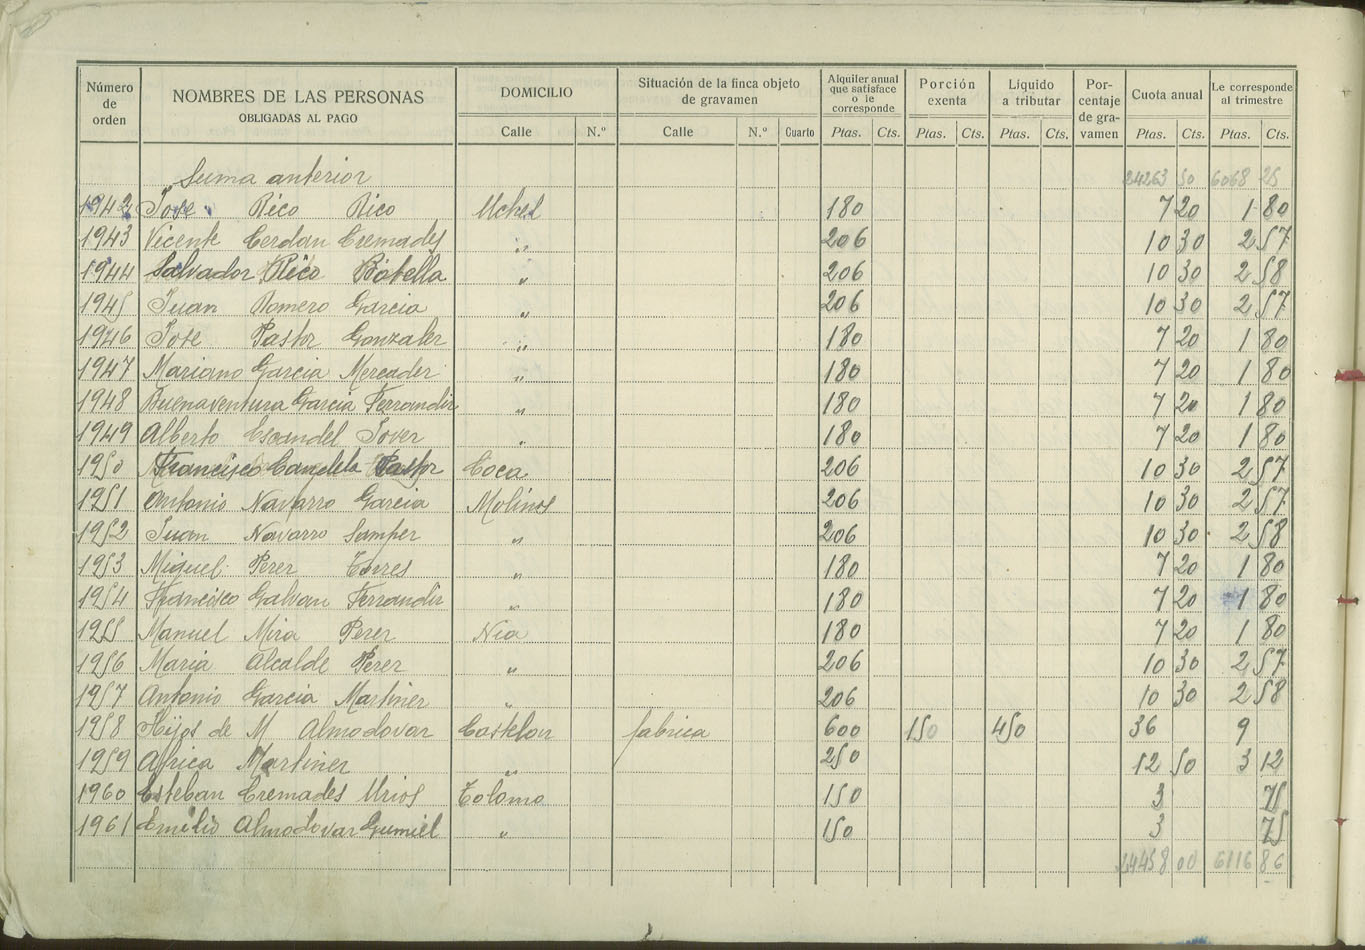 Número de orden NOMBRES DE LAS PERSONAS OBLIGADAS AL PAGO DOMICILIO Situación de la finca objeto de gravamen Alquiler anual que satisface o le corresponde Porción exenta Líquido a tributar Por-centaje de gra-vamen Cuota anual Le corresponde al trimestre
Calle N.º Calle N.º Cuarto Ptas. Cts. Ptas. Cts. Ptas. Cts. Ptas. Cts. Ptas. Cts.
Suma anterior 24263 50 6068 25
1942 Jose Rico Rico Uchel 180 7 20 1 80
1943 Vicente Cerdan Cremades " 206 10 30 2 57
1944 Salvador Rico Botella " 206 10 30 2 58
1945 Juan Romero Garcia " 206 10 30 2 57
1946 Jose Pastor Gonzalez " 180 7 20 1 80
1947 Mariano Garcia Mercader " 180 7 20 1 80
1948 Buenaventura Garcia Ferrandiz " 180 7 20 1 80
1949 Alberto Escandel Jover " 180 7 20 1 80
1950 Francisco Candela Pastor Coca 206 10 30 2 57
1951 Antonio Navarro Garcia Molinos 206 10 30 2 57
1952 Juan Navarro Samper " 206 10 30 2 58
1953 Miguel Perez Torres " 180 7 20 1 80
1954 Francisco Galvan Ferrandiz " 180 7 20 1 80
1955 Manuel Mira Perez Nia 180 7 20 1 80
1956 Maria Alcalde Perez " 206 10 30 2 57
1957 Antonio Garcia Martinez " 206 10 30 2 58
1958 Hijos de M Almodovar Castelar fabrica 600 150 450 36 9
1959 Africa Martinez " 250 12 50 3 12
1960 Esteban Cremades Urios Colomo 150 3 75
1961 Emilio Almodovar Gumiel " 150 3 75
24458 00 6116 86